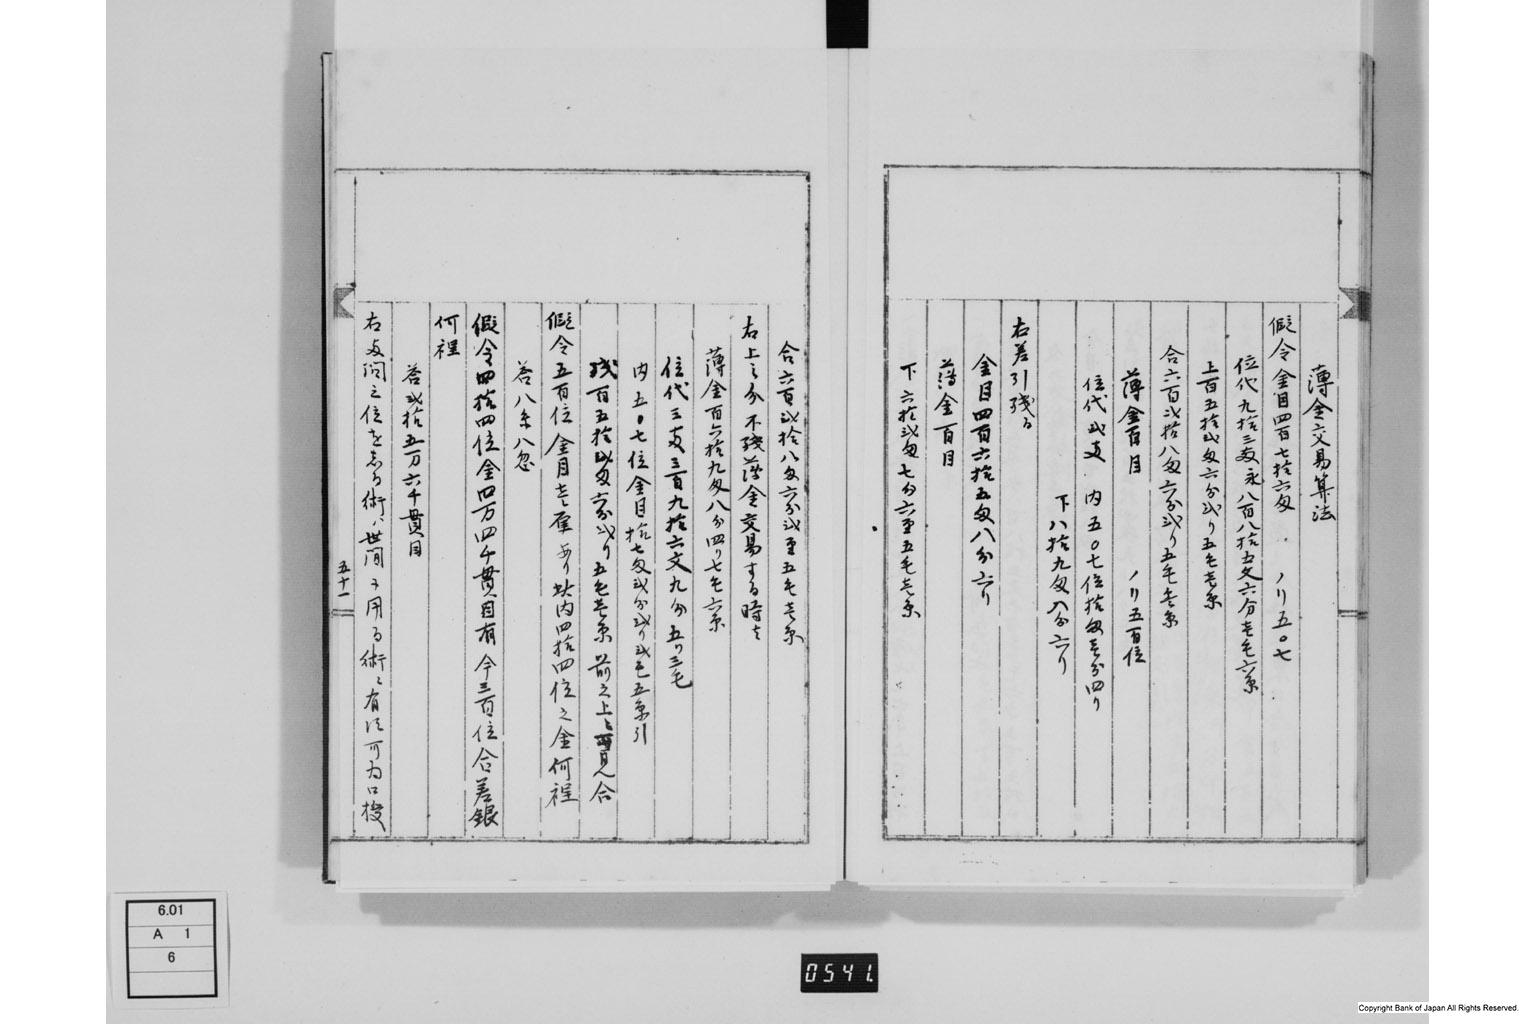 薄金交易算法
假令金目四百七拾六匁 ノリ五〇七
位代九拾三両永八百八拾五文六分壱毛六糸
上百五拾弐匁六分弐リ五毛壱糸
合六百弐拾八匁六分弐リ五毛壱糸
薄金百目 ノリ五百位
位代弐両 内五〇七位拾匁壱分四リ
下八拾九匁八分六リ
右差引残る
金目四百六拾五匁八分六リ
薄金百目
下六拾弐匁七分六厘五毛壱糸
合六百弐拾八匁六分弐厘五毛壱糸
右上之分不残薄金交易する時は
薄金百六拾九匁八分四リ七毛六糸
位代三両三百九拾六文九分五リ三毛
内五〇七位金目拾七匁弐分弐リ弐毛五糸引
残百五拾弐匁六分弐リ五毛壱糸前之上と見合
假令五百位金目壱厘あり此内四拾四位之金何程
答八糸八忽
假令四拾四位金四万四千貫目有今三百位合差銀
何程
答弐拾五万六千貫目
右両問之位を知る術は世間に用る術に有決可為口授
五十一
6.01
A 1
6
0541.
Copyright Bank of Japan All Rights Reserved.